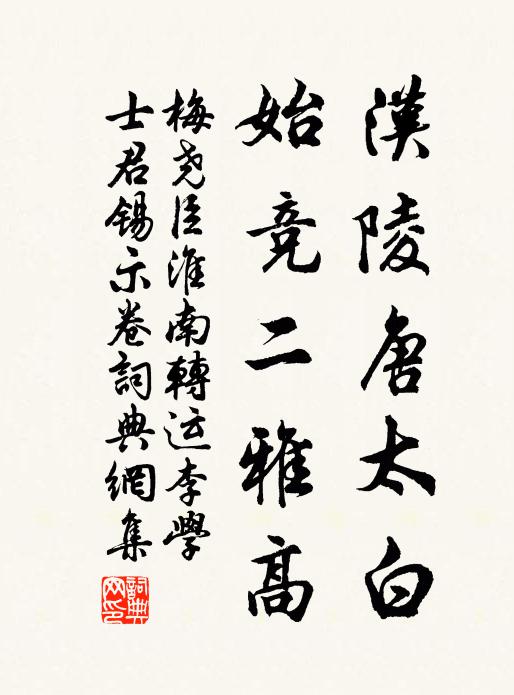 漢陵唐太白
始竞二雅高
梅尧臣淮南轉运李學
士君锡示卷詞典網集
詞典
网印